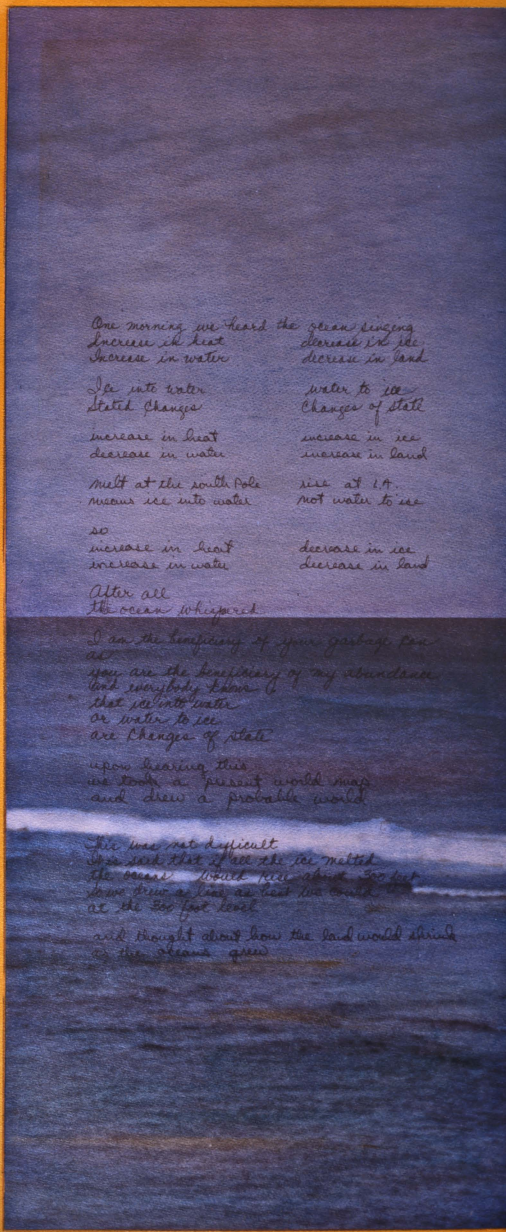 One morning we heard the ocean singing
Increase in heat decrease in ice
Increase in water decrease in land
Ice into water water to ice
Stated Changes Changes of state
increase in heat increase in ice
decrease in water increase in land
melt at the south Pole rise at L.A.
means ice into water not water to ice
so
increase in heat decrease in ice
increase in water decrease in land
After all
the ocean whispered
I am the beneficiary of your garbage can
as
you are the beneficiary of my abundance
and everybody knows
that ice into water
or water to ice
are Changes of state
upon hearing this
we took a present world map
and drew a probable world
This was not difficult
It is said that if all the ice melted
the oceans would rise about 300 feet
so we drew a line as best we could
at the 300 foot level
and thought about how the land would shrink
as the oceans grew